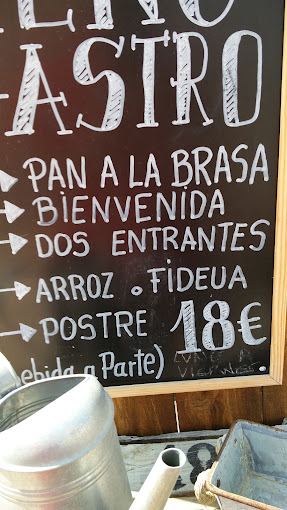 ASTRO
PAN A LA BRASA
BIENVENIDA
DOS ENTRANTES
ARROZ o FIDEUA
POSTRE 18€
ebida a Parte)
VIERNES